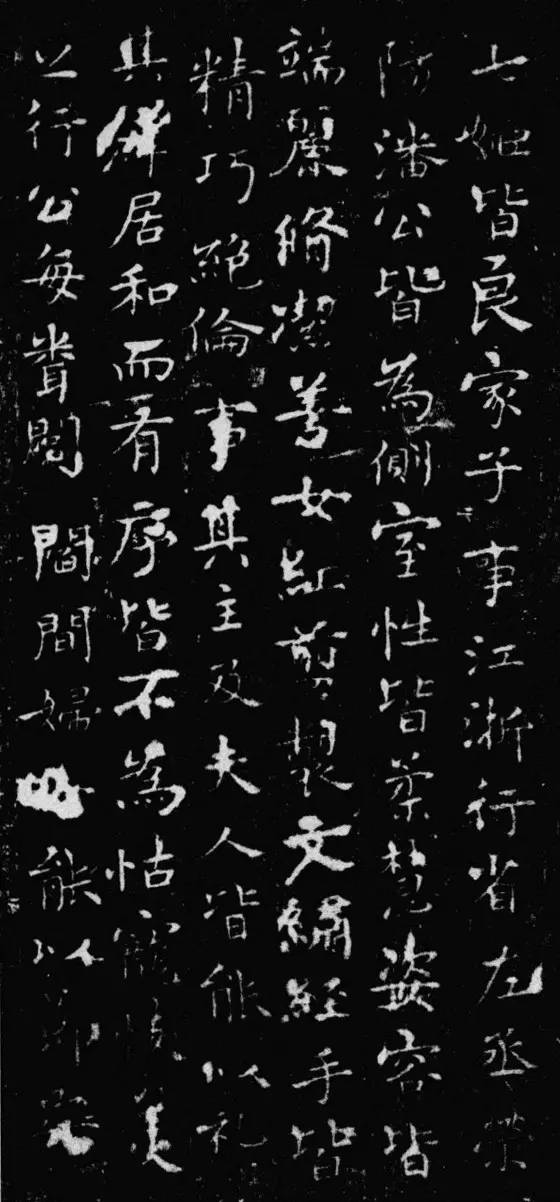 七姬皆良家子事江浙行省左丞滎
陽潘公皆為側室性皆柔慧姿容皆
端麗脩潔善女紅剪製文繡經手皆
精巧絕倫事其主及夫人皆能以礼
其儕居和而有序皆不為怙寵恃美
之行公每閻間婦能以節